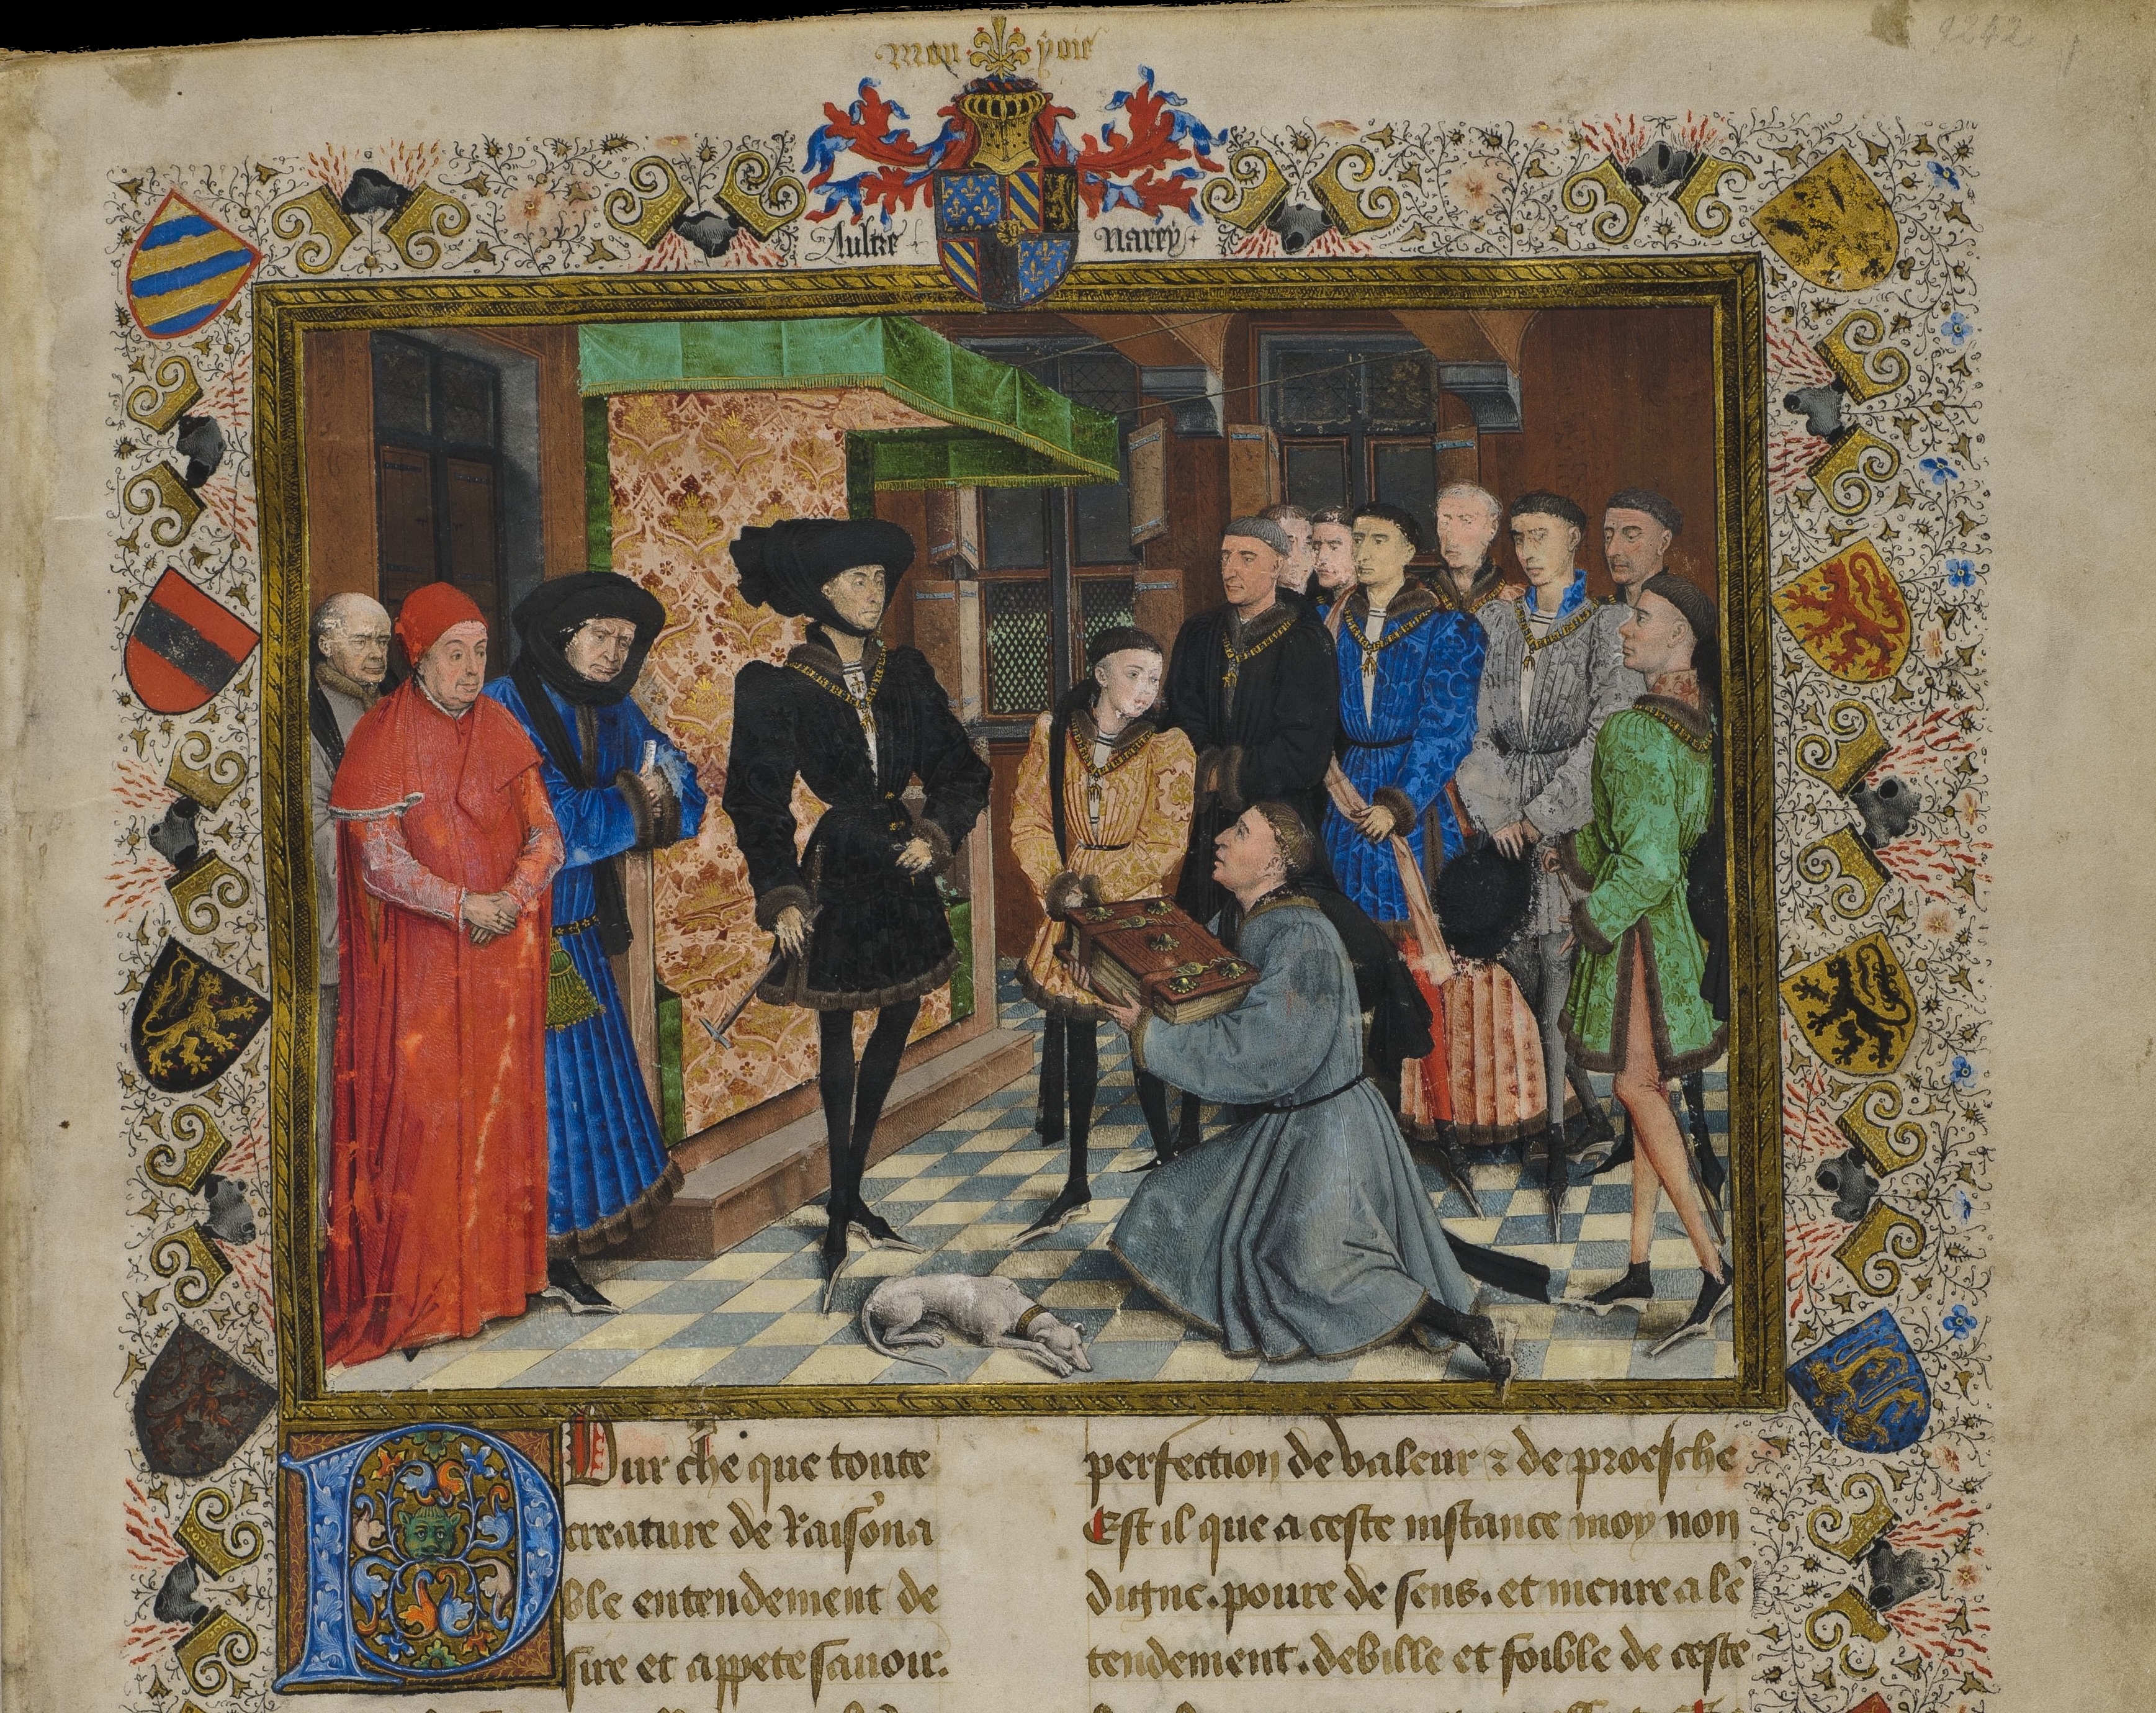 Mon yoie
9242
Aultre Narey
Pour che que toute
creature de Raisona
ble entendement de
sire et appete sauoir.
perfection de valeur & de proesche
Est il que a ceste instance moy non
digne. poure de sens. et menre a lē
tendement. debille et foible de ceste